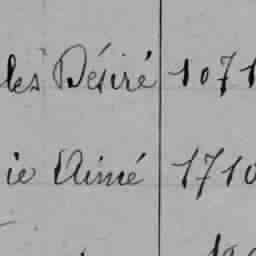 les Désiré 1071
ie Aimé 1710